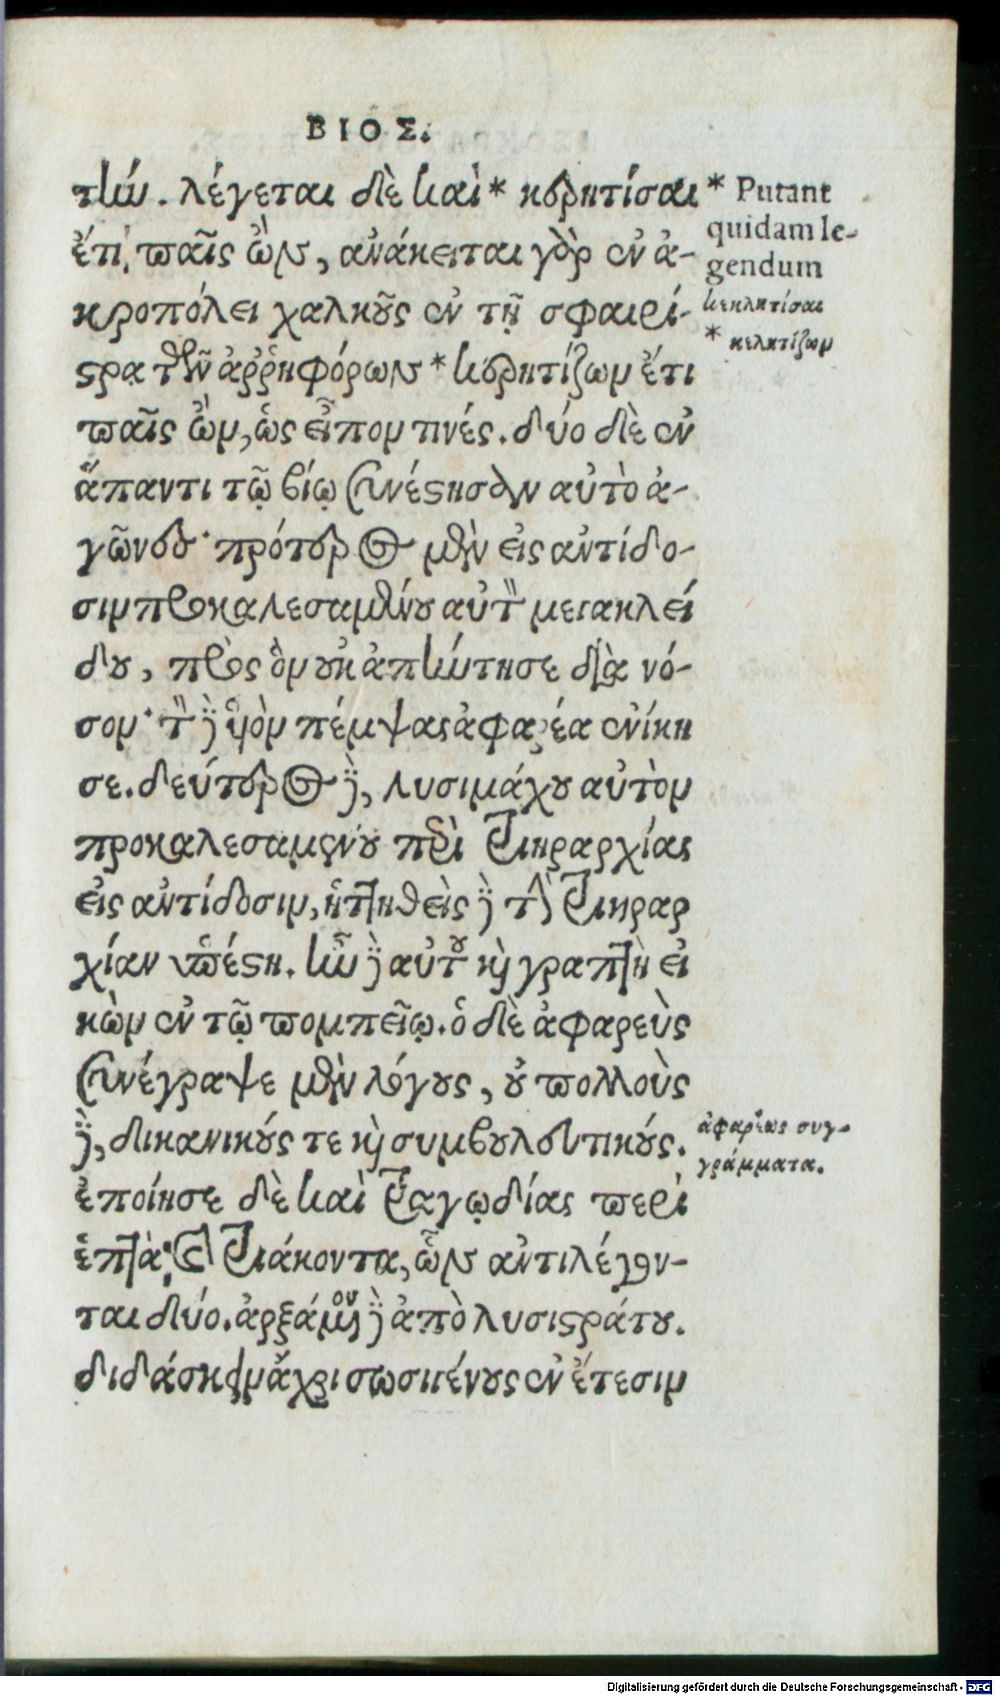 ΒΙΟΣ.
την. λέγεται δὲ καὶ * κερητίσαι
ἔτι παῖς ὢν, ἀνάκειται γὰρ ἐν ἀ-
κροπόλει χαλκοῦς ἐν τῇ σφαιρί-
στρα τῶν ἀῤῥηφόρων * κερητίζων ἔτι
παῖς ὢν, ὡς εἶπον τινές. δύο δὲ ἐν
ἅπαντι τῷ βίῳ συνέστησαν αὐτὸ ἀ-
γῶνες· πρότερος μὲν εἰς ἀντίδο-
σιν προκαλεσαμένου αὐτὸν μεγακλεί
δου, πρὸς ὃν οὐκ ἀπήντησε διὰ νό-
σον· τὸν δὲ ὑὸν πέμψας ἀφαρέα ἐνίκη
σε. δεύτερος δὲ, λυσιμάχου αὐτὸν
προκαλεσαμένου περὶ τριηραρχίας
εἰς ἀντίδοσιν, ἡττηθεὶς δὲ τὴν τριηραρ
χίαν ὑπέστη. ἦν δὲ αὐτοῦ καὶ γραπτὴ εἰ
κὼν ἐν τῷ πομπείῳ. ὁ δὲ ἀφαρεὺς
συνέγραψε μὲν λόγους, οὐ πολλοὺς
δὲ, δικανικούς τε καὶ συμβουλευτικούς.
ἐποίησε δὲ καὶ τραγῳδίας περὶ
ἑπτὰ καὶ τριάκοντα, ὧν ἀντιλέγον-
ται δύο. ἀρξάμενος δὲ ἀπὸ λυσιστράτου.
διδάσκειν ἄχρι σωσιγένους ἐν ἔτεσιν
* Putant
quidam le-
gendum
κεκλητίσαι
* κελητίζων
ἀφαρέως συγ-
γράμματα.
Digitalisierung gefördert durch die Deutsche Forschungsgemeinschaft - DFG